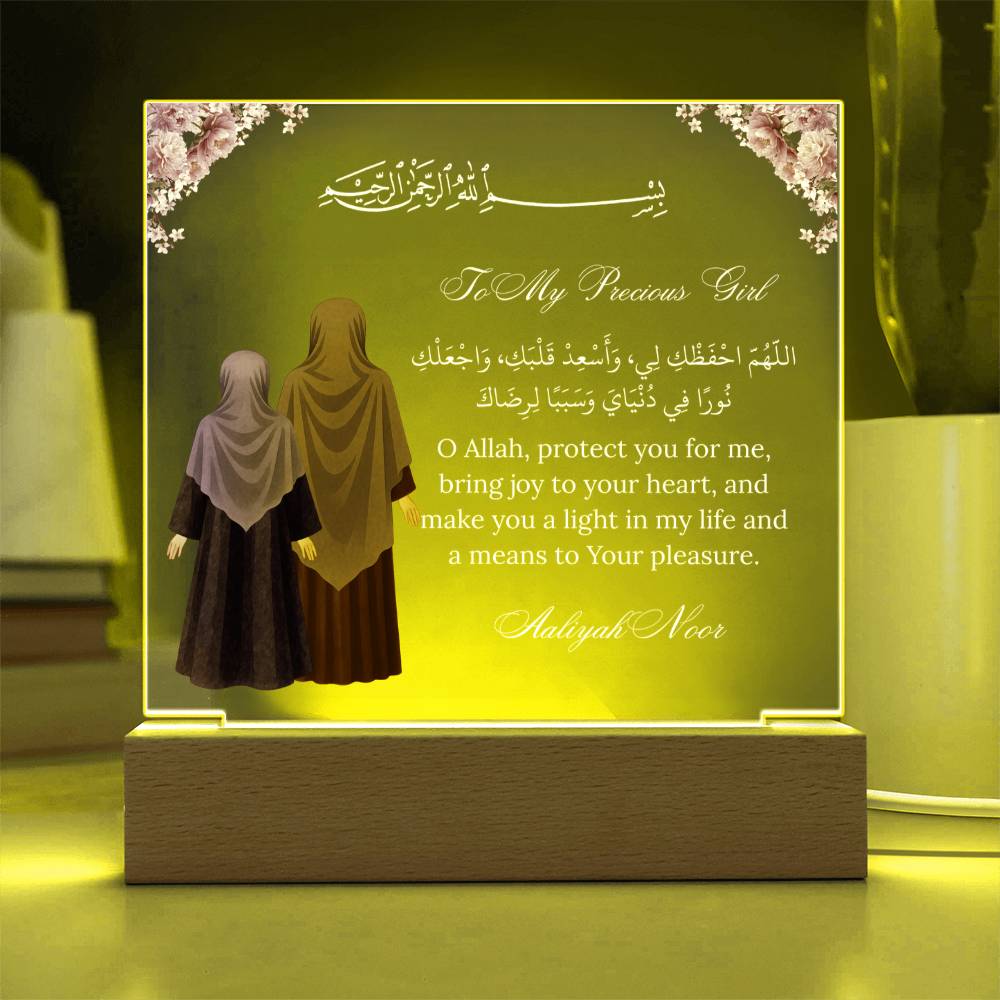 بِسْمِ ٱللَّهِ ٱلرَّحْمَٰنِ ٱلرَّحِيمِ
To My Precious Girl
اللّهُمّ احْفَظْكِ لِي، وَأَسْعِدْ قَلْبَكِ، وَاجْعَلْكِ
نُورًا فِي دُنْيَايَ وَسَبَبًا لِرِضَاكَ
O Allah, protect you for me,
bring joy to your heart, and
make you a light in my life and
a means to Your pleasure.
Aaliyah Noor